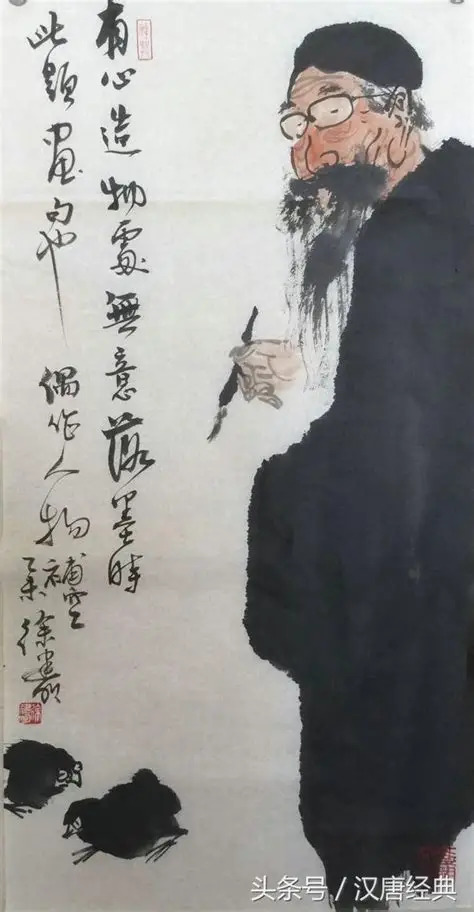 有心造物處無意落墨時
此題畫句也 偶作人物
補空
徐
头条号 / 汉唐经典